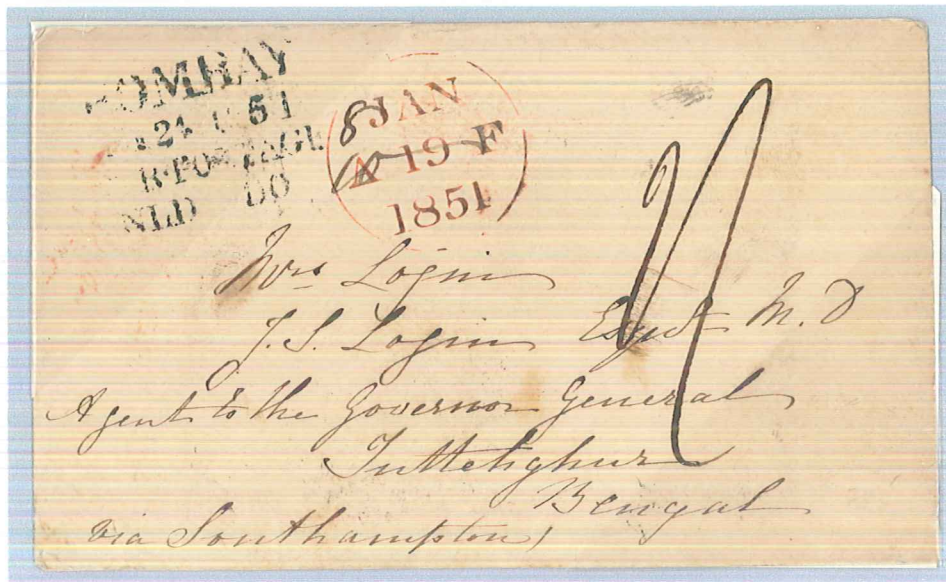 BOMBAY
24 51
R. POSTAGE
NLD DO
8
JAN
A 19 F
1851
Mrs Login
J. S. Login Esqr M. D
Agent to the Governor General
Futtehghur
Bengal
via Southampton